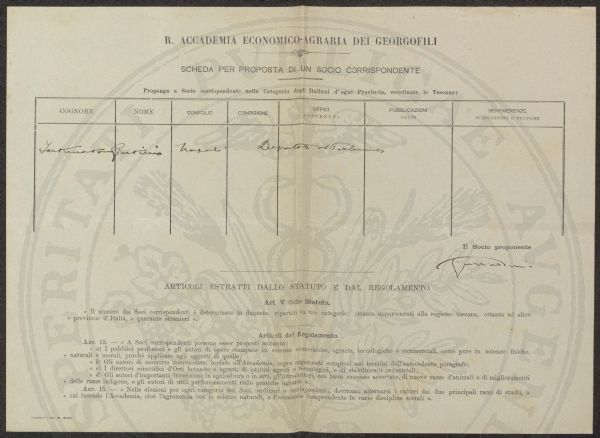 R. ACCADEMIA ECONOMICO-AGRARIA DEI GEORGOFILI
SCHEDA PER PROPOSTA DI UN SOCIO CORRISPONDENTE
Propongo a Socio corrispondente nella Categoria degli Italiani d'ogni Provincia, eccettuate le Toscane:
COGNOME NOME DOMICILIO CONDIZIONE UFFICI SOSTENUTI PUBBLICAZIONI FATTE BENEMERENZE SCIENTIFICHE O PRATICHE
Fortunato Giustino Napoli Deputato al Parlamento
Il Socio proponente
ARTICOLI ESTRATTI DALLO STATUTO E DAL REGOLAMENTO.
Art. V dello Statuto.
« Il numero dei Soci corrispondenti è determinato in dugento, ripartiti in tre categorie: ottanta appartenenti alla regione toscana, ottanta ad altre
« provincie d'Italia, e quaranta stranieri ».
Articoli del Regolamento.
ART. 12. — « A Soci corrispondenti possono esser proposti soltanto:
« a) I pubblici professori e gli autori di opere stampate in scienze economiche, agrarie, tecnologiche o commerciali, come pure in scienze fisiche,
« naturali o morali, purchè applicate agli oggetti di quelle;
« b) Gli autori di memorie manoscritte inviate all'Accademia, sopra argomenti compresi nei termini dell'antecedente paragrafo;
« c) I direttori scientifici d'Orti botanici e agrari, di istituti agrari e tecnologici, o di stabilimenti industriali;
« d) Gli autori d'importanti invenzioni in agricoltura o in arti, gl'introduttori, con buon successo accertato, di nuove razze d'animali o di miglioramenti
« delle razze indigene, e gli autori di utili perfezionamenti nelle pratiche agrarie ».
ART. 15. — « Nelle elezioni per ogni categoria dei Soci, ordinari o corrispondenti, dovranno alternarsi i cultori dei due principali rami di studio, a
« cui intende l'Accademia, cioè l'agronomia con le scienze naturali, e l'economia comprendente le varie discipline sociali ».